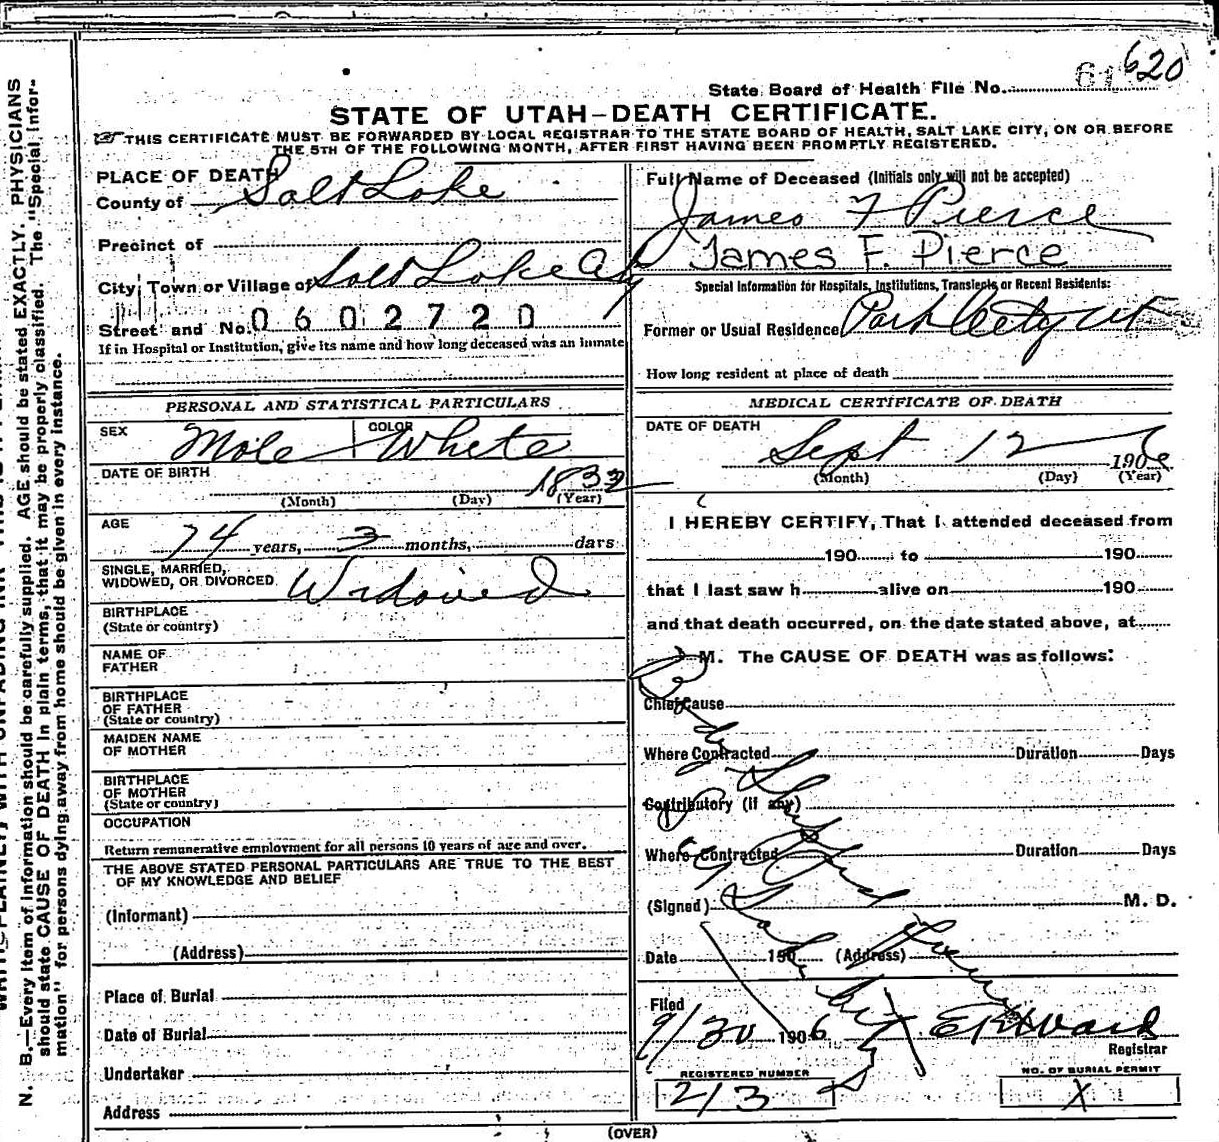 620
61
State Board of Health File No.
STATE OF UTAH—DEATH CERTIFICATE.
THIS CERTIFICATE MUST BE FORWARDED BY LOCAL REGISTRAR TO THE STATE BOARD OF HEALTH, SALT LAKE CITY, ON OR BEFORE
THE 5TH OF THE FOLLOWING MONTH, AFTER FIRST HAVING BEEN PROMPTLY REGISTERED.
PLACE OF DEATH
County of Salt Lake
Precinct of
City, Town or Village of Salt Lake City
Street and No. 0602720
If in Hospital or Institution, give its name and how long deceased was an inmate
Full Name of Deceased (Initials only will not be accepted)
James F Pierce
James F. Pierce
Special Information for Hospitals, Institutions, Transients or Recent Residents:
Former or Usual Residence Park City Ut
How long resident at place of death
PERSONAL AND STATISTICAL PARTICULARS
SEX Male COLOR White
DATE OF BIRTH 1832
(Month) (Day) (Year)
AGE 74 years, 3 months, days
SINGLE, MARRIED,
WIDOWED, OR DIVORCED Widowed
BIRTHPLACE
(State or country)
NAME OF
FATHER
BIRTHPLACE
OF FATHER
(State or country)
MAIDEN NAME
OF MOTHER
BIRTHPLACE
OF MOTHER
(State or country)
OCCUPATION
Return remunerative employment for all persons 10 years of age and over.
THE ABOVE STATED PERSONAL PARTICULARS ARE TRUE TO THE BEST
OF MY KNOWLEDGE AND BELIEF
(Informant)
(Address)
Place of Burial
Date of Burial
Undertaker
Address
MEDICAL CERTIFICATE OF DEATH
DATE OF DEATH
Sept 12 1906
(Month) (Day) (Year)
I HEREBY CERTIFY, That I attended deceased from
190 to 190
that I last saw h alive on 190
and that death occurred, on the date stated above, at
M. The CAUSE OF DEATH was as follows:
Chief Cause
Where Contracted Duration Days
Contributory (if any)
Where Contracted Duration Days
(Signed) M. D.
Date 190 (Address)
Body Shipped
Filed
9/30 1906
Registrar
REGISTERED NUMBER
213
NO. OF BURIAL PERMIT
X
(OVER)
N. B.—Every item of information should be carefully supplied. AGE should be stated EXACTLY. PHYSICIANS
should state CAUSE OF DEATH in plain terms, that it may be properly classified. The "Special Infor-
mation" for persons dying away from home should be given in every instance.